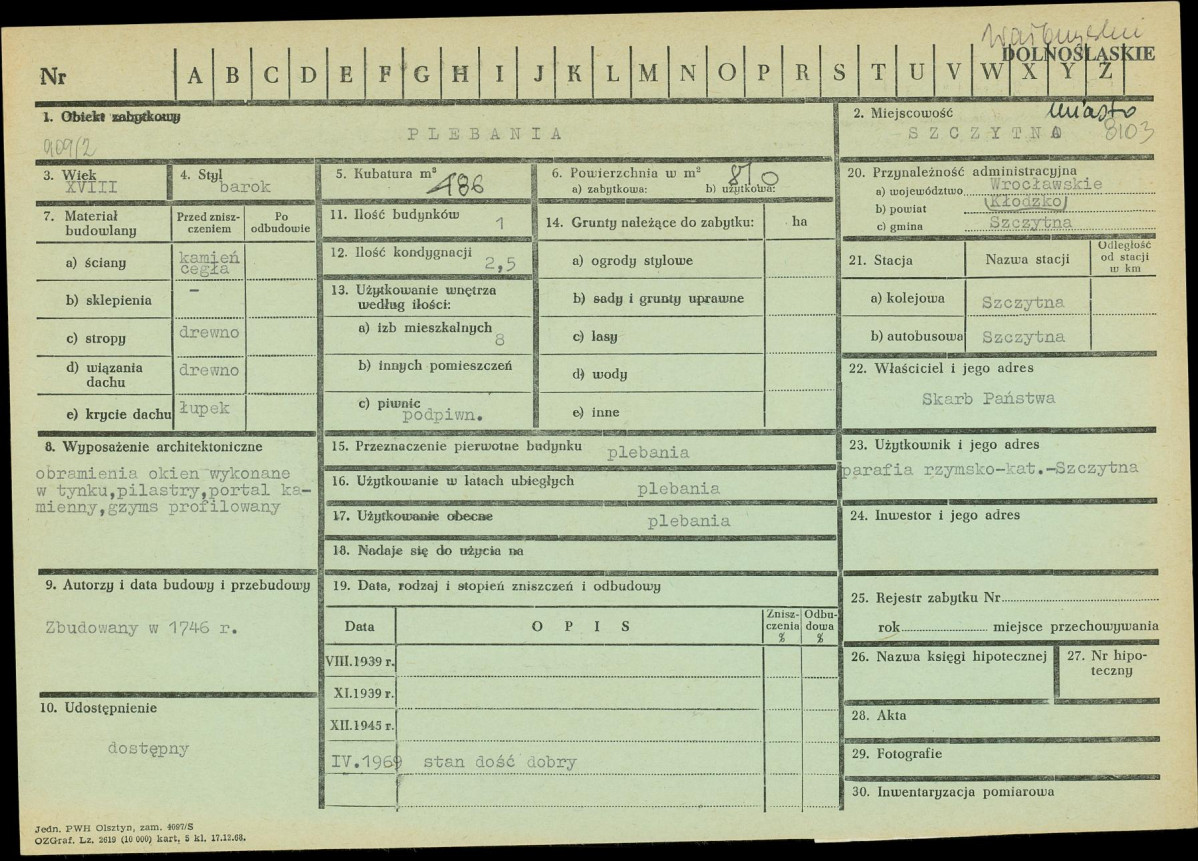 Wałbrzyskie
DOLNOŚLĄSKIE
Nr A B C D E F G H I J K L M N O P R S T U V W X Y Z
1. Obiekt zabytkowy
PLEBANIA
909/2
2. Miejscowość
miasto
SZCZYTNA 8103
3. Wiek
XVIII
4. Styl
barok
5. Kubatura m³
486
6. Powierzchnia w m²
a) zabytkowa: b) użytkowa:
810
20. Przynależność administracyjna
a) województwo Wrocławskie
b) powiat (Kłodzko)
c) gmina Szczytna
7. Materiał budowlany
Przed znisz-
czeniem
Po
odbudowie
a) ściany kamień
cegła
b) sklepienia –
c) stropy drewno
d) wiązania
dachu drewno
e) krycie dachu łupek
11. Ilość budynków
1
12. Ilość kondygnacji
2,5
13. Użytkowanie wnętrza
według ilości:
a) izb mieszkalnych
8
b) innych pomieszczeń
c) piwnic
podpiwn.
14. Grunty należące do zabytku: ha
a) ogrody stylowe
b) sady i grunty uprawne
c) lasy
d) wody
e) inne
21. Stacja Nazwa stacji
Odległość
od stacji
w km
a) kolejowa Szczytna
b) autobusowa Szczytna
22. Właściciel i jego adres
Skarb Państwa
8. Wyposażenie architektoniczne
obramienia okien wykonane
w tynku,pilastry,portal ka-
mienny,gzyms profilowany
15. Przeznaczenie pierwotne budynku plebania
16. Użytkowanie w latach ubiegłych plebania
17. Użytkowanie obecne plebania
18. Nadaje się do użycia na
23. Użytkownik i jego adres
parafia rzymsko-kat.-Szczytna
24. Inwestor i jego adres
9. Autorzy i data budowy i przebudowy
Zbudowany w 1746 r.
19. Data, rodzaj i stopień zniszczeń i odbudowy
Data OPIS
Znisz-
czenia
%
Odbu-
dowa
%
VIII.1939 r.
XI.1939 r.
XII.1945 r.
IV.1969 stan dość dobry
10. Udostępnienie
dostępny
25. Rejestr zabytku Nr
rok miejsce przechowywania
26. Nazwa księgi hipotecznej
27. Nr hipo-
teczny
28. Akta
29. Fotografie
30. Inwentaryzacja pomiarowa
Jedn. PWH Olsztyn, zam. 4097/S
OZGraf. Lz. 2619 (10 000) kart, 5 kl. 17.12.68.